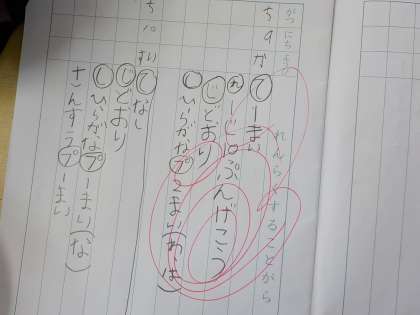 がつ にち
れんらくすることから
ち 9 が
て 1まい
れ 1じ10ぷんげこう
じ どおり
し ひらがなプ2まい(れ、は)
ち 10 すい
て なし
じ どおり
し ひらがなプ1まい(な)
さんすうプ1まい